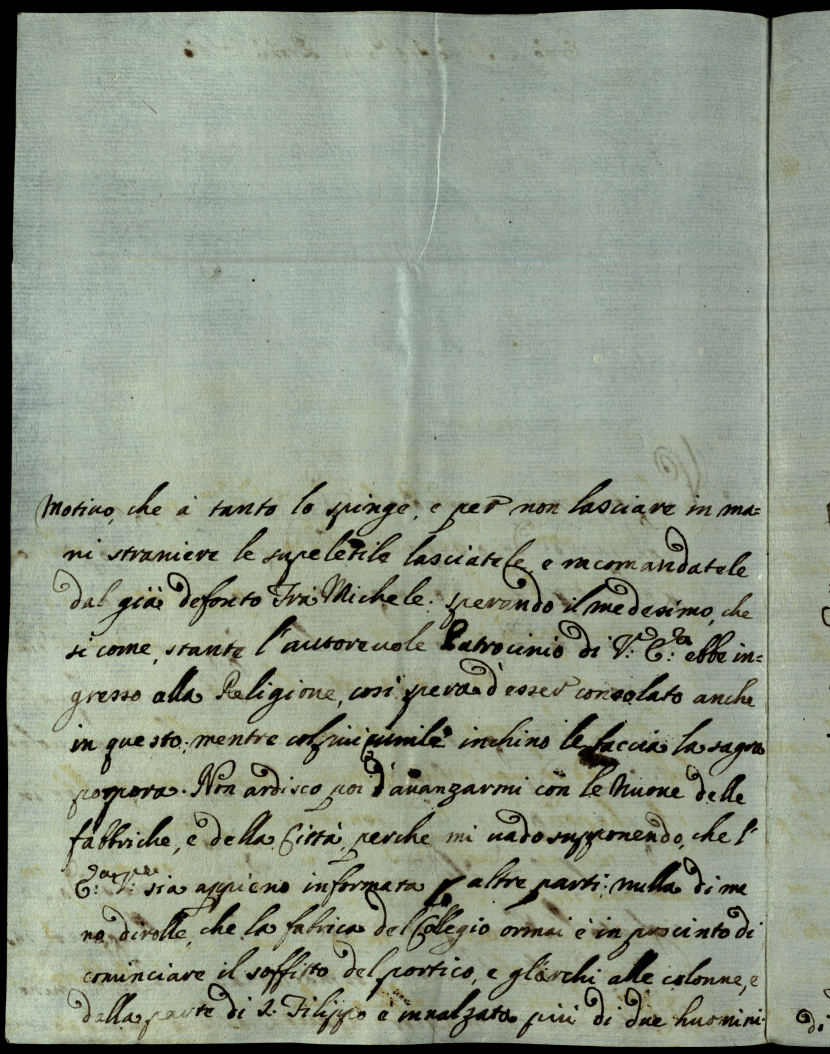 Motivo, che à tanto lo spinge, e per non lasciare in ma=
ni straniere le supeletile lasciatele, e racomandatele
dal già defonto Frà Michele: sperando il medesimo, che
si come, stante l'autorevole Patrocinio di V.ª E.ᶻᵃ ebbe in=
gresso alla Religione, così spera d'esser consolato anche
in questo; mentre col più umile inchino le baccia la sagra
porpora. Non ardisco poi d'avanzarmi con le Nuove delle
fabbriche, e della Città, perche mi vado supponendo, che l'
E.ᶻᵃ V.ª sia appieno informata p altre parti: nulla di me
no dirolle, che la fabrica del Collegio ormai è in procinto di
cominciare il soffitto del portico, e gl'archi alle colonne, e
dalla parte di S. Filippo è innalzata più di due huomini:
di